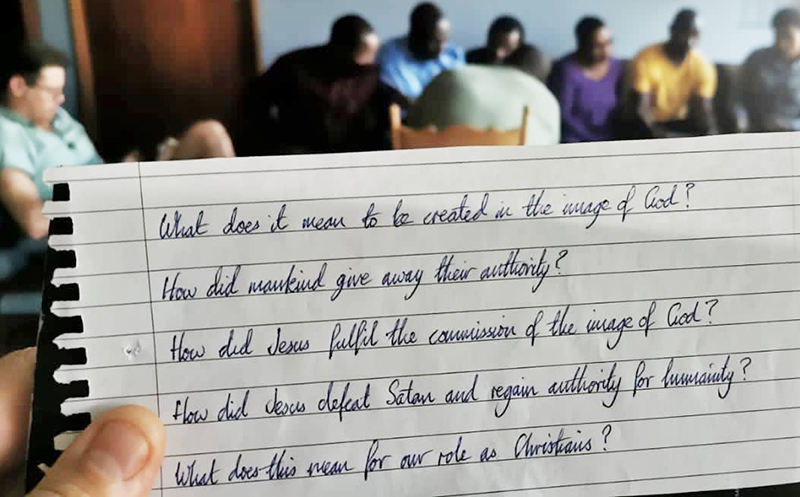 What does it mean to be created in the image of God?
How did mankind give away their authority?
How did Jesus fulfil the commission of the image of God?
How did Jesus defeat Satan and regain authority for humainty?
What does this mean for our role as Christians?